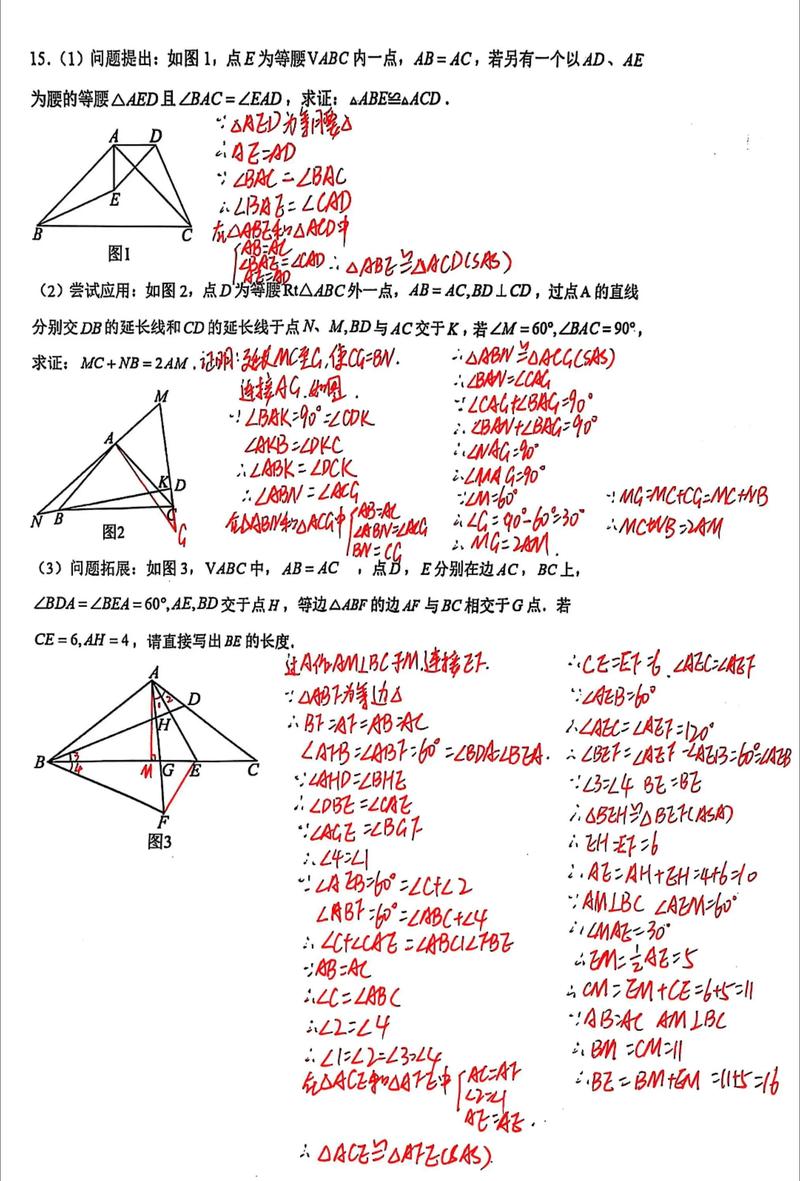 15.（1）问题提出：如图1，点E为等腰VABC内一点，AB=AC，若另有一个以AD、AE
为腰的等腰△AED且∠BAC=∠EAD，求证：△ABE≌△ACD．
∵△AED为等腰△
∴AE=AD
∵∠BAC=∠BAC
∴∠BAE=∠CAD
在△ABE和△ACD中
AB=AC
∠BAE=∠CAD ∴△ABE≌△ACD(SAS)
AE=AD
A D
E
B C
图1
（2）尝试应用：如图2，点D为等腰Rt△ABC外一点，AB=AC,BD⊥CD，过点A的直线
分别交DB的延长线和CD的延长线于点N、M,BD与AC交于K，若∠M=60°,∠BAC=90°，
求证：MC+NB=2AM．
证明：延长MC至G,使CG=BN.
连接AG.如图.
∵∠BAK=90°=∠CDK
∠AKB=∠DKC
∴∠ABK=∠DCK
∴∠ABN=∠ACG
在△ABN和△ACG中
AB=AC
∠ABN=∠ACG
BN=CG
∴△ABN≌△ACG(SAS)
∴∠BAN=∠CAG
∵∠CAG+∠BAG=90°
∴∠BAN+∠BAG=90°
∴∠NAG=90°
∴∠MAG=90°
∵∠M=60°
∴∠G=90°-60°=30°
∴MG=2AM.
∵MG=MC+CG=MC+NB
∴MC+NB=2AM
M
A
K D
N B C
G
图2
（3）问题拓展：如图3，VABC中，AB=AC ，点D，E分别在边AC，BC上，
∠BDA=∠BEA=60°,AE,BD交于点H，等边△ABF的边AF与BC相交于G点．若
CE=6,AH=4，请直接写出BE的长度．
A
1 2 D
H
B 3 4 M G E C
F
图3
过A作AM⊥BC于M.连接EF.
∵△ABF为等边△
∴BF=AF=AB=AC
∠AFB=∠ABF=60°=∠BDA=∠BEA.
∵∠AHD=∠BHE
∴∠DBE=∠CAE
∵∠AGE=∠BGF
∴∠4=∠1
∵∠AEB=60°=∠C+∠2
∠ABF=60°=∠ABC+∠4
∴∠C+∠CAE=∠ABC+∠FBE
∵AB=AC
∴∠C=∠ABC
∴∠2=∠4
∴∠1=∠2=∠3=∠4
在△ACE和△AFE中
AC=AF
∠2=∠1
AE=AE.
∴△ACE≌△AFE(SAS).
∴CE=EF=6.∠AEC=∠AEF
∵∠AEB=60°
∴∠AEC=∠AEF=120°
∴∠BEF=∠AEF-∠AEB=60°=∠AEB
∵∠3=∠4 BE=BE
∴△BEH≌△BEF(ASA)
∴EH=EF=6
∴AE=AH+EH=4+6=10
∵AM⊥BC ∠AEM=60°
∴∠MAE=30°
∴EM=½AE=5
∴CM=EM+CE=6+5=11
∵AB=AC AM⊥BC
∴BM=CM=11
∴BE=BM+EM=11+5=16